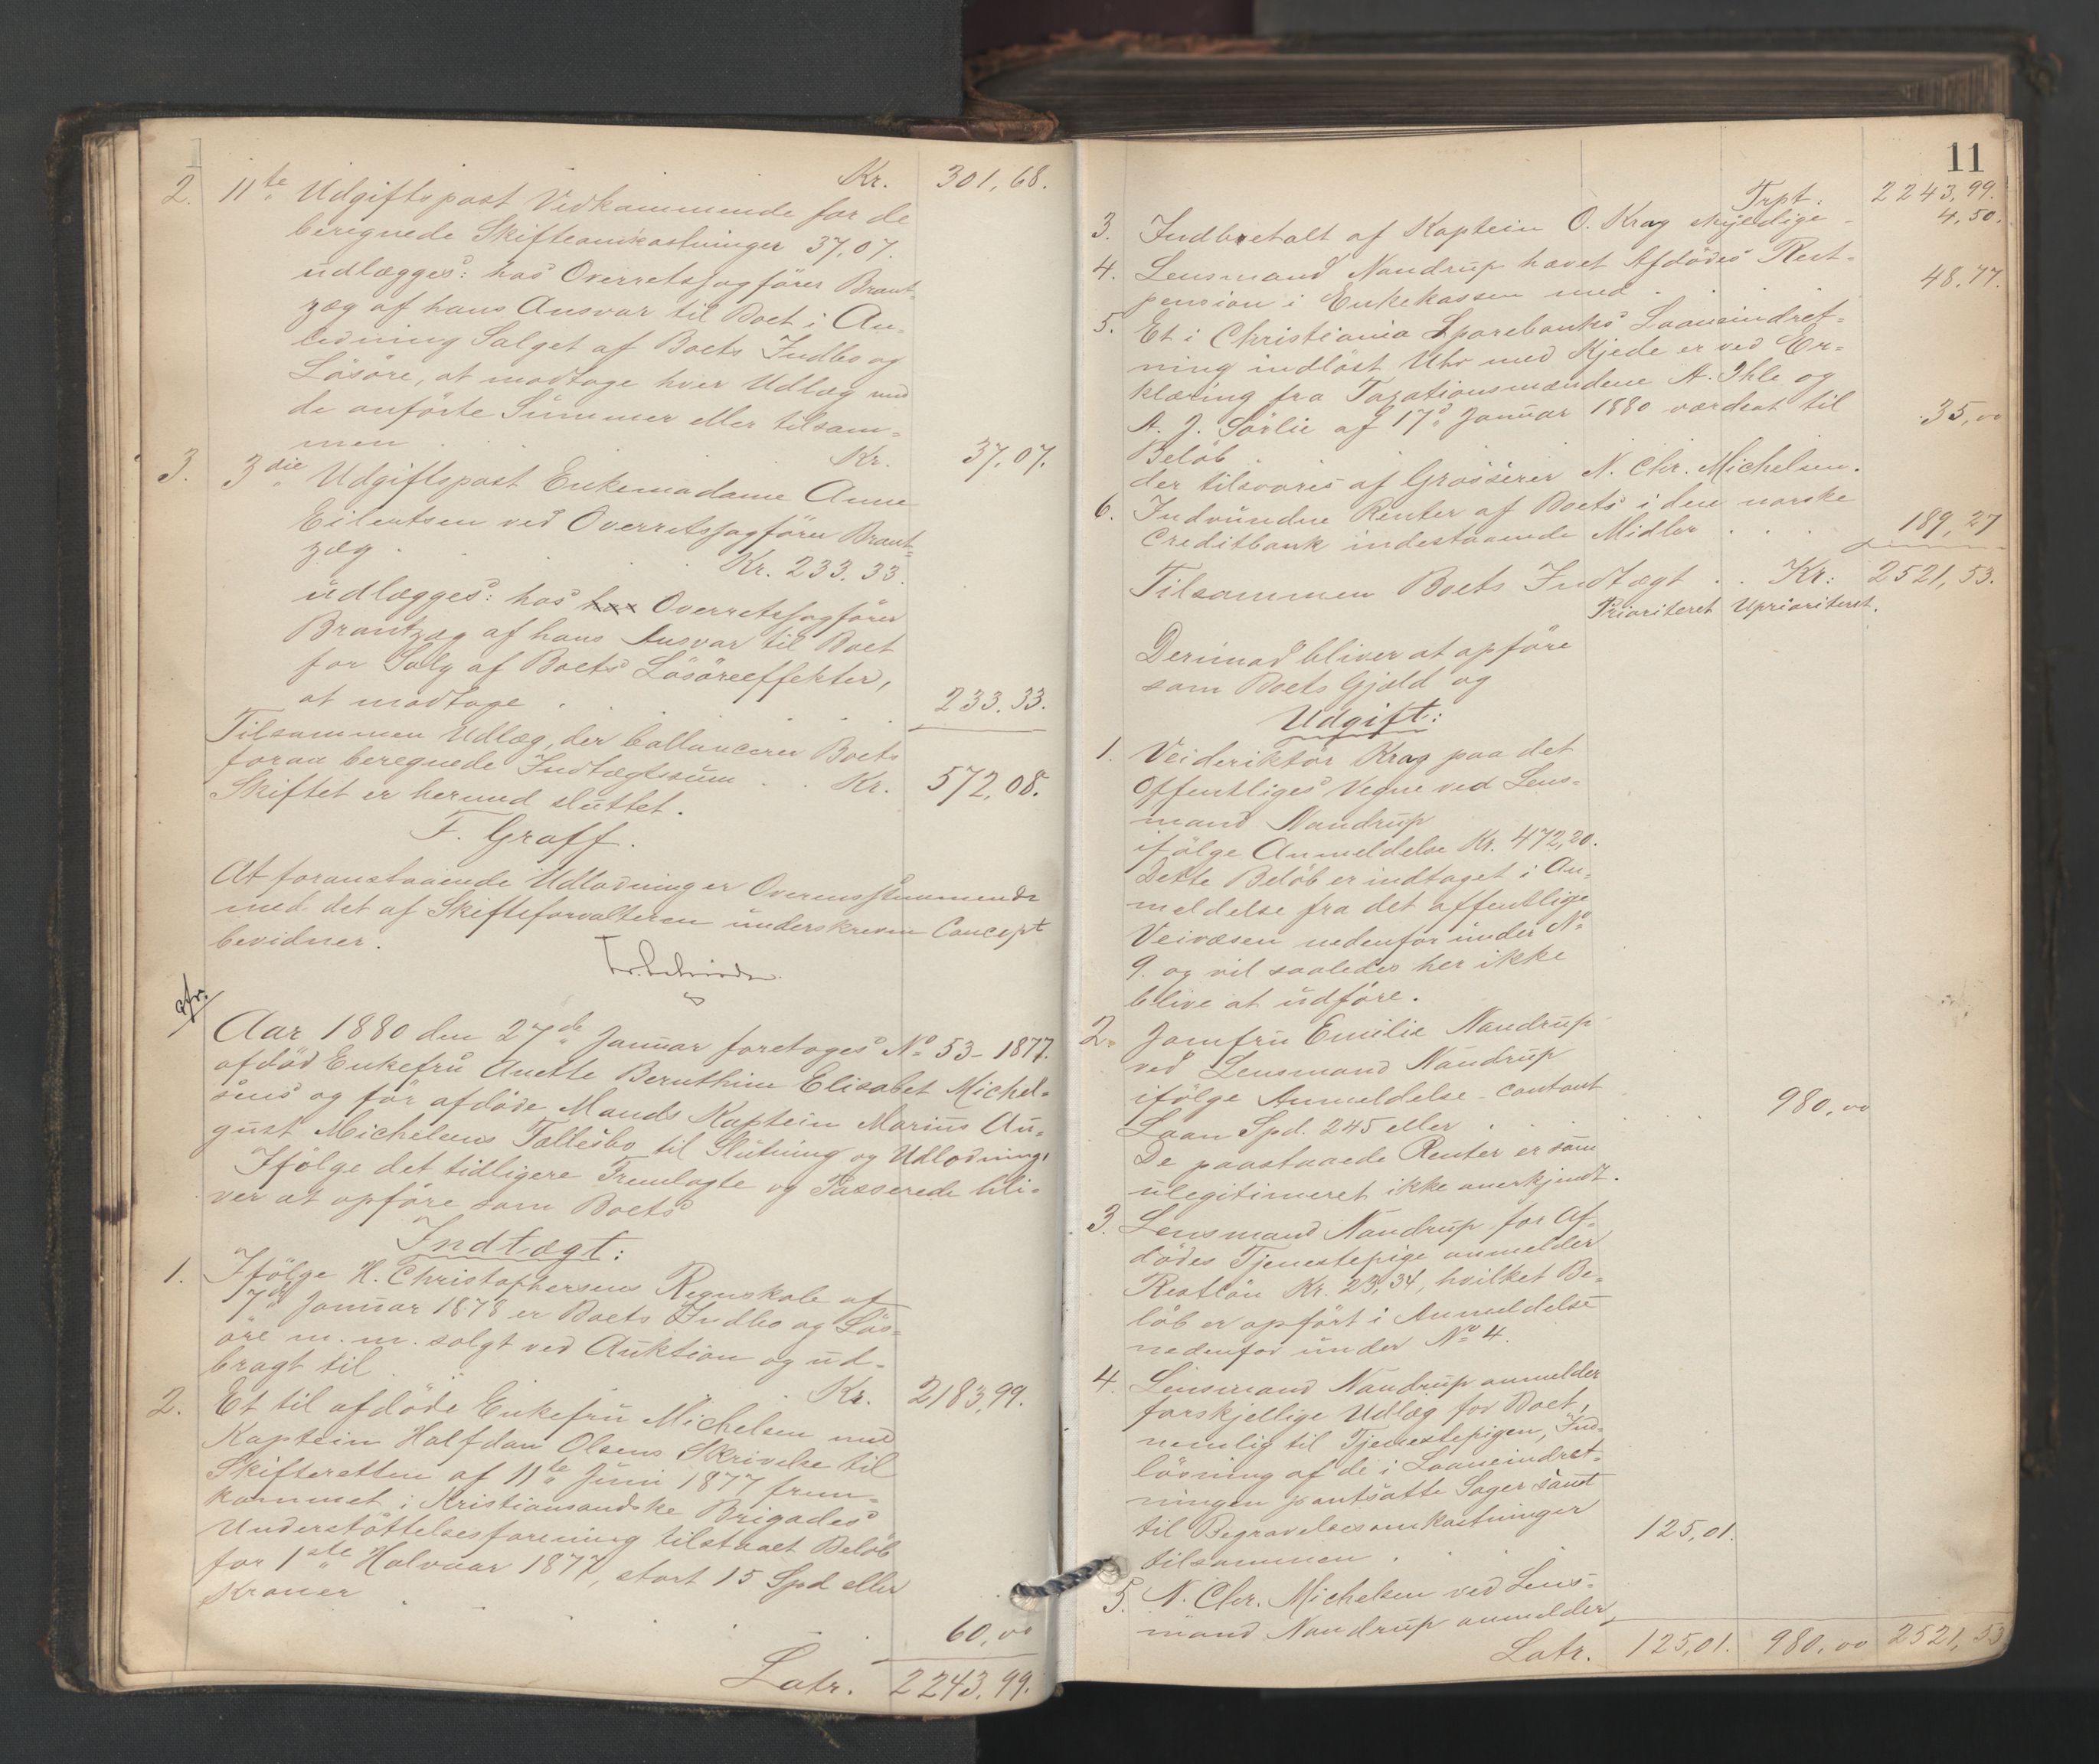 Kr. 301,68.
2. 11te Udgiftspost Vedkommende for de
beregnede Skifteomkostninger 37,07.
udlægges: hos Overretssagfører Brant-
zæg af hans Ansvar til Boet i An-
ledning Salget af Boets Indbo og
Løsøre, at modtage hver Udlæg med
de anførte Summer eller tilsam-
men . Kr. 37,07.
3. 3die Udgiftspost Enkemadame Anne
Eilertsen ved Overretssagfører Brant-
zæg . . Kr. 233.33.
udlægges: hos hos Overretssagfører
Brantzæg af hans Ansvar til Boet
for Salg af Boets Løsøreeffekter,
at modtage . . . 233.33.
Tilsammen Udlæg, der ballancerer Boets
foran beregnede Indtægtssum . . Kr. 572,08.
Skiftet er hermed sluttet.
F. Graff.
At foranstaaende Udlodning er Overensstemmende
med det af Skifteforvalteren underskrevne Concept
bevidner.
cfr.
Aar 1880 den 27de Januar foretoges No 53-1877.
afdød Enkefru Anette Bernthine Elisabet Michel-
sens og før afdøde Mands Kaptein Marius Au-
gust Michelsens Fællesbo til Slutning og Udlodning,
Ifølge det tidligere Fremlagte og Passerede bli-
ver at opføre som Boets
Indtægt:
1. Ifølge H. Christophersens Regnskab af
7de Januar 1878 er Boets Indbo og Løs-
øre m. m. solgt ved Auktion og ud-
bragt til . . . Kr. 2183,99.
2. Et til afdøde Enkefru Michelsen med
Kaptein Halfdan Olsens Skrivelse til
Skifteretten af 11te Juni 1877 frem-
kommet i Kristiansandske Brigades
Understøttelsesforening tilstaaet Beløb
for 1ste Halvaar 1877, stort 15 Spd. eller
Kroner . . . 60,00
Latr. 2243,99.
11
Trpt: 2243,99.
3. Indbetalt af Kaptein O. Krag skyldige - 4,50.
4. Lensmand Nandrup hævet Afdødes Rest-
pension i Enkekassen med . . . 48.77.
5. Et i Christiania Sparebanks Laaneindret-
ning indløst Uhr med Kjede er ved Er-
klæring fra Taxationsmændene A. Ihle og
A. J. Sørlie af 17d. Januar 1880 værdsat til
Beløb . 35,00
der tilsvares af Grosserer N. Chr. Michelsen.
6. Indvundne Renter af Boets i den norske
Creditbank indestaaende Midler . . . 189,27
Tilsammen Boets Indtægt . . Kr: 2521,53.
Prioriteret Uprioriteret.
Derimod bliver at opføre
som Boets Gjæld og
Udgift:
1. Veidirektør Krag paa det
Offentliges Vegne ved Lens-
mand Nandrup
ifølge Anmeldelse Kr. 472,20.
Dette Beløb er indtaget i An-
meldelse fra det offentlige
Veivæsen nedenfor under No
9. og vil saaledes her ikke
blive at udføre.
2. Jomfru Emilie Nandrup
ved Lensmand Nandrup
ifølge Anmeldelse - contant
Laan Spd. 245 eller . . . 980,00
De paastaaede Renter er som
ulegitimeret ikke anerkjendt.
3. Lensmand Nandrup for Af-
dødes Tjenestepige anmelder
Restløn Kr. 23,34, hvilket Be-
løb er opført i Anmeldelse
nedenfor under No 4.
4. Lensmand Nandrup anmelder
forskjellige Udlæg for Boet,
nemlig til Tjenestepigen, Ind-
løsning af de i Laaneindret-
ningen pantsatte Sager samt
til Begravelsesomkostninger
tilsammen . . . 125,01.
5. N. Chr. Michelsen ved Lens-
mand Nandrup anmelder,
Latr. 125,01. 980,00 2521,53